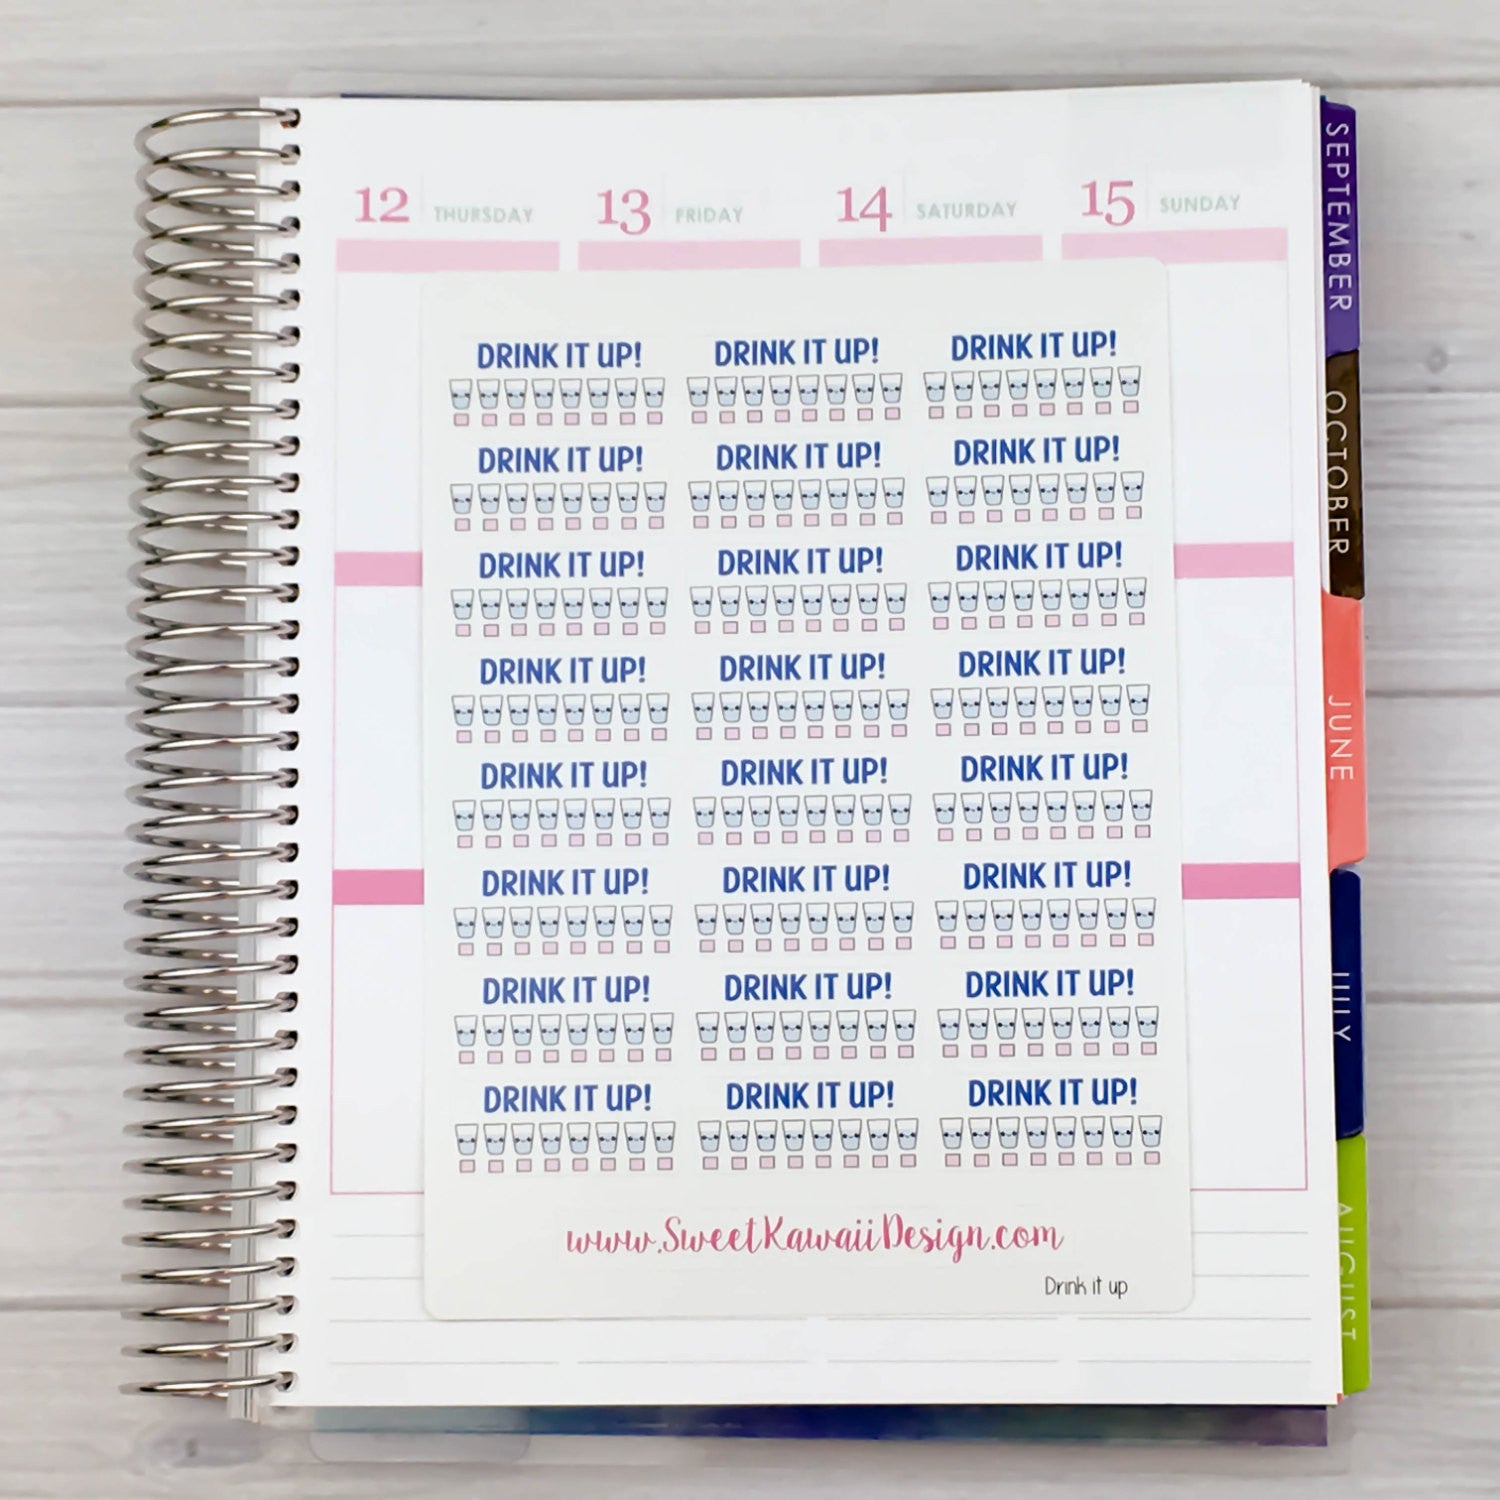 12 THURSDAY 13 FRIDAY 14 SATURDAY 15 SUNDAY
DRINK IT UP! DRINK IT UP! DRINK IT UP!
DRINK IT UP! DRINK IT UP! DRINK IT UP!
DRINK IT UP! DRINK IT UP! DRINK IT UP!
DRINK IT UP! DRINK IT UP! DRINK IT UP!
DRINK IT UP! DRINK IT UP! DRINK IT UP!
DRINK IT UP! DRINK IT UP! DRINK IT UP!
DRINK IT UP! DRINK IT UP! DRINK IT UP!
DRINK IT UP! DRINK IT UP! DRINK IT UP!
www.SweetKawaiiDesign.com
Drink it up
SEPTEMBER
OCTOBER
JUNE
JULY
AUGUST